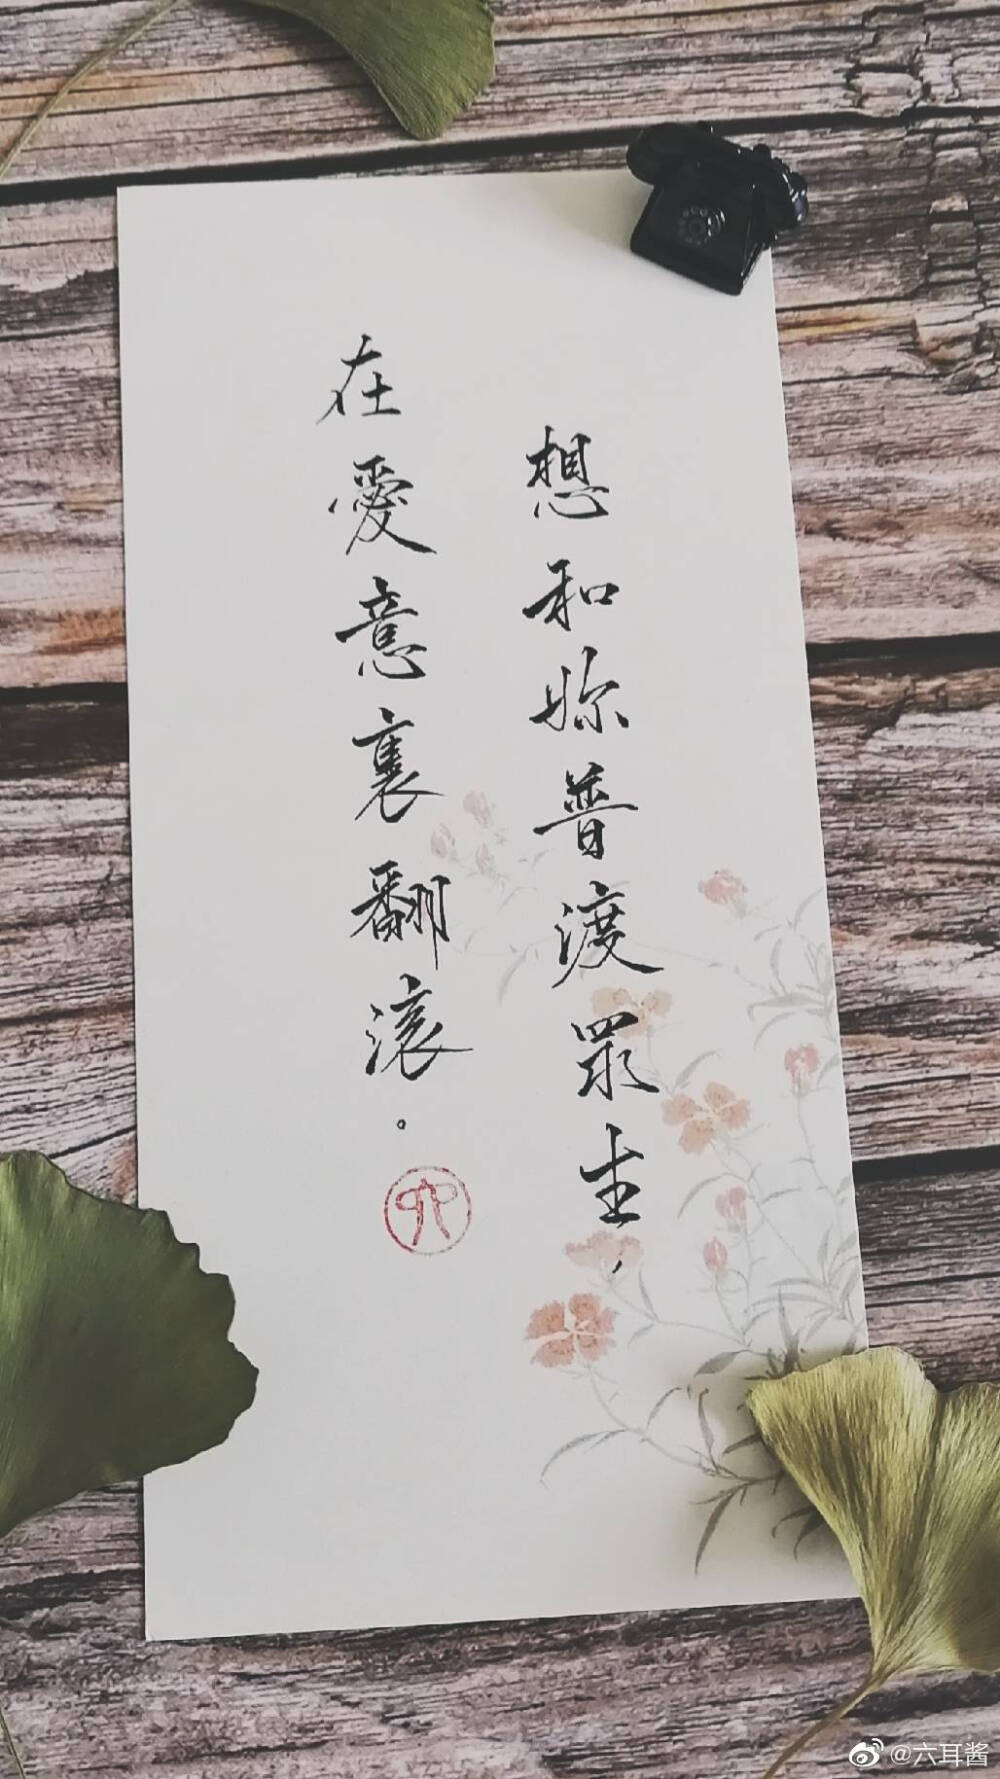 想和妳普渡眾生，
在愛意裏翻滾。
@六耳酱